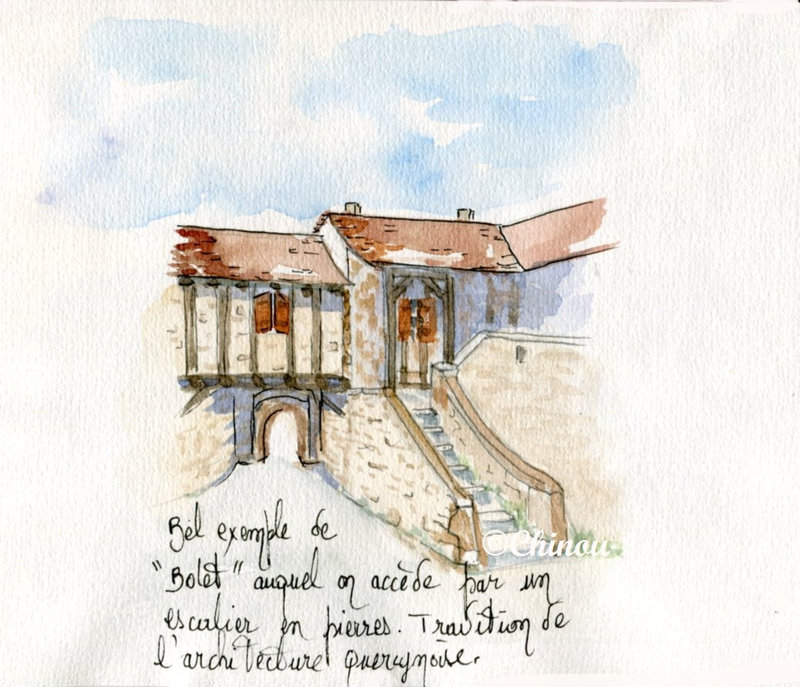 ©Chinou
Bel exemple de
"Bolet" auquel on accède par un
escalier en pierres. Tradition de
l'architecture Quercynoise.